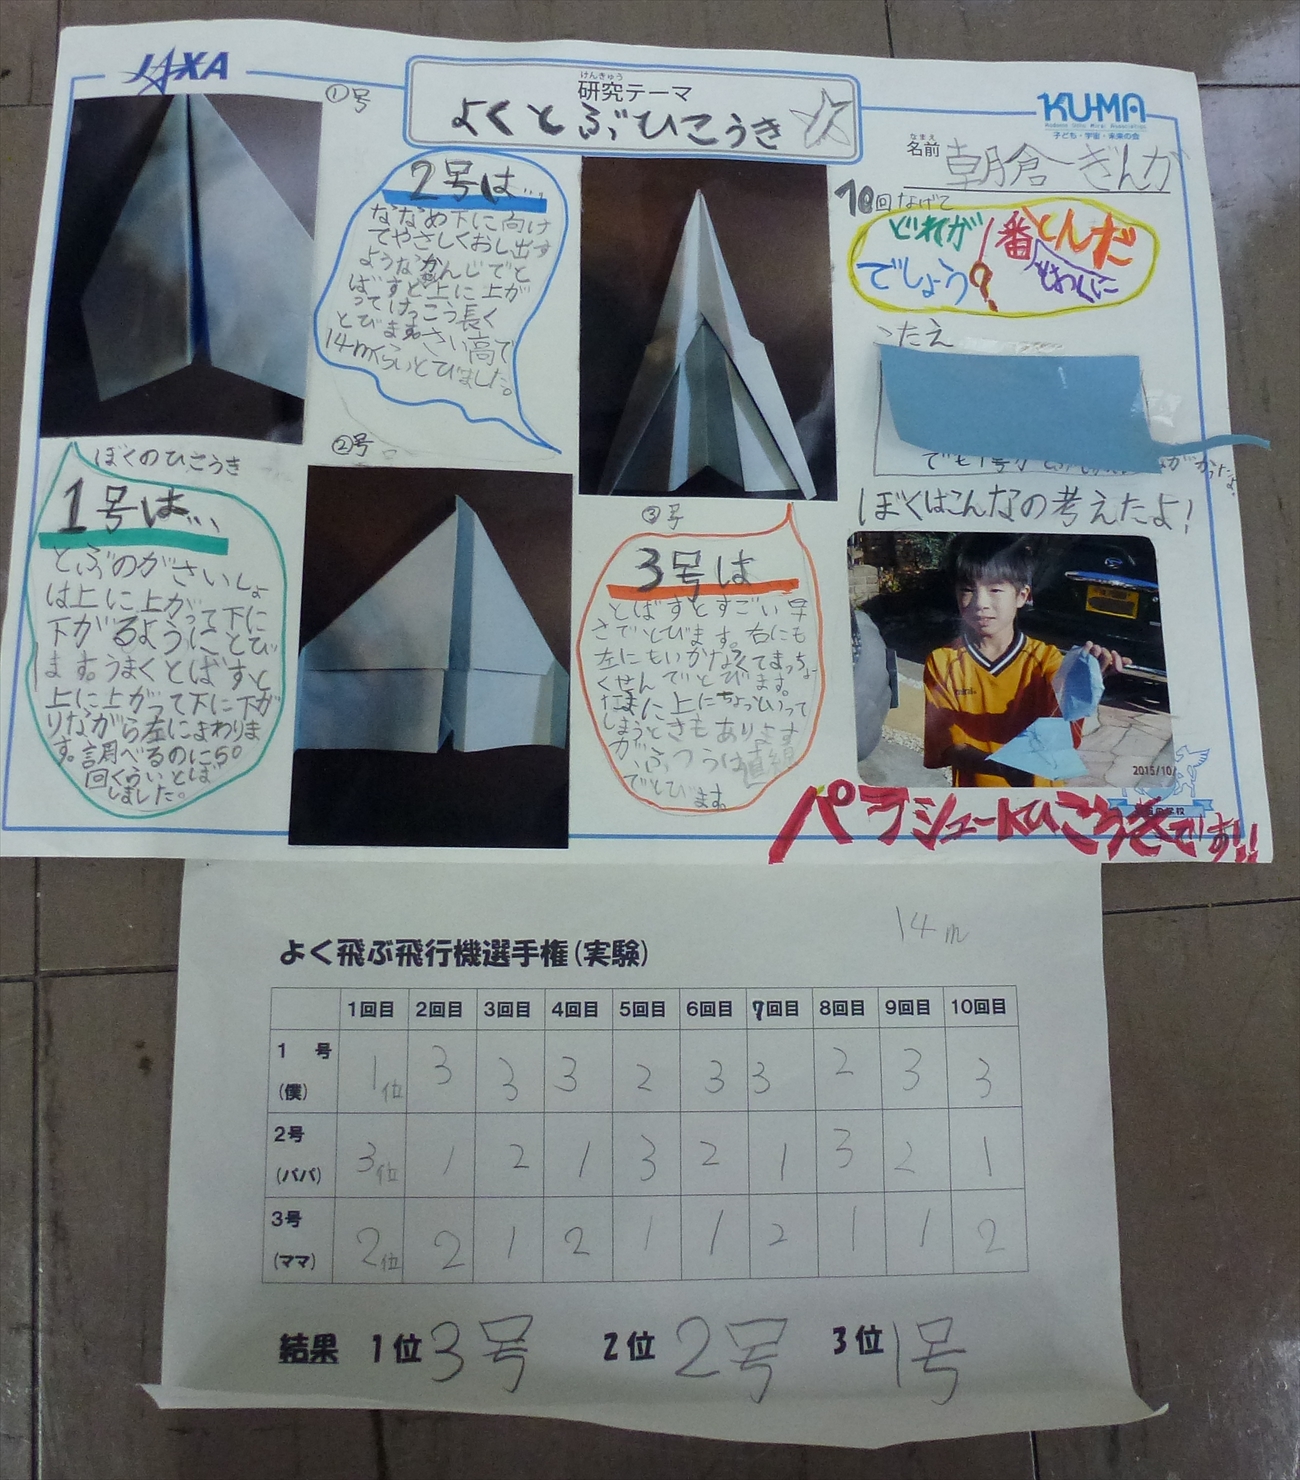 JAXA
けんきゅう
研究テーマ
よくとぶひこうき
KU-MA
子ども・宇宙・未来の会
なまえ
名前 朝倉ぎんが
①号
2号は...
ななめ下に向け
てやさしくおし出す
ようなかんじでと
ばすと上に上が
ってけっこう長く
とびます。さい高で
14mくらいとびました。
②号
ぼくのひこうき
1号は...
とぶのがさいしょ
は上に上がって下に
下がるようにとび
ます。うまくとばすと
上に上がって下に下が
りながら左にまわりま
す。調べるのに50
回くらいとば
しました。
③号
3号は
とばすとすごい早
さでとびます。右にも
左にもいかなくてまっちょ
くせんでとびます。
たまに上にちょっといって
しまうときもあります
が、ふつうは直線
でとびます。
10回なげて
どれが一番とんだ
でしょう?
こたえ
ぼくはこんなの考えたよ!
2015/10/
パラシュートひこうきです!!
14m
よく飛ぶ飛行機選手権(実験)
1回目 2回目 3回目 4回目 5回目 6回目 7回目 8回目 9回目 10回目
1号(僕) 1位 3 3 3 2 3 3 2 3 3
2号(パパ) 3位 1 2 1 3 2 1 3 2 1
3号(ママ) 2位 2 1 2 1 1 2 1 1 2
結果 1位3号 2位2号 3位1号